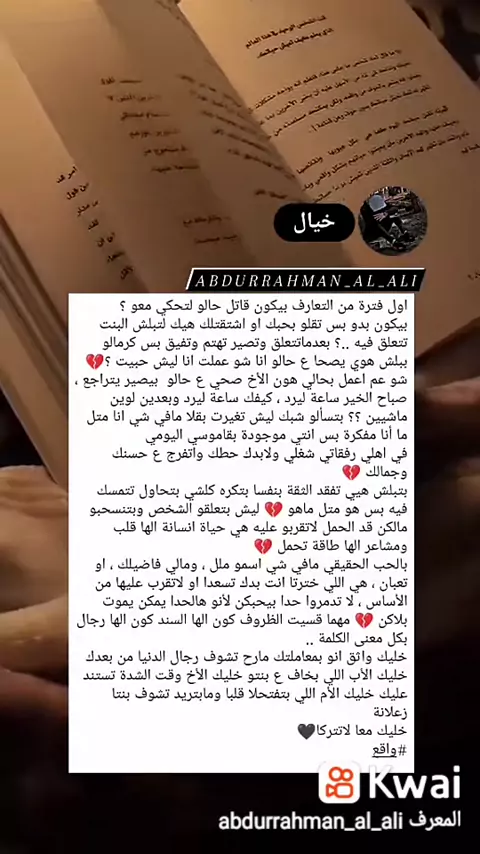 خيال
ABDURRAHMAN_AL_ALI
اول فترة من التعارف بيكون قاتل حالو لتحكي معو ؟
بيكون بدو بس تقلو بحبك او اشتقتلك هيك لتبلش البنت
تتعلق فيه ..؟ بعدماتتعلق وتصير تهتم وتفيق بس كرمالو
ببلش هوي يصحا ع حالو انا شو عملت انا ليش حبيت ؟💔
شو عم اعمل بحالي هون الأخ صحي ع حالو بيصير يتراجع ،
صباح الخير ساعة ليرد ، كيفك ساعة ليرد وبعدين لوين
ماشيين ؟؟ بتسألو شبك ليش تغيرت بقلا مافي شي انا متل
ما أنا مفكرة بس انتي موجودة بقاموسي اليومي
في اهلي رفقاتي شغلي ولابدك حطك واتفرج ع حسنك
وجمالك 💔
بتبلش هيي تفقد الثقة بنفسا بتكره كلشي بتحاول تتمسك
فيه بس هو متل ماهو 💔 ليش بتعلقو الشخص وبتنسحبو
مالكن قد الحمل لاتقربو عليه هي حياة انسانة الها قلب
ومشاعر الها طاقة تحمل 💔
بالحب الحقيقي مافي شي اسمو ملل ، ومالي فاضيلك ، او
تعبان ، هي اللي خترتا انت بدك تسعدا او لاتقرب عليها من
الأساس ، لا تدمروا حدا بيحبكن لأنو هالحدا يمكن يموت
بلاكن 💔 مهما قسيت الظروف كون الها السند كون الها رجال
بكل معنى الكلمة ..
خليك واثق انو بمعاملتك مارح تشوف رجال الدنيا من بعدك
خليك الأب اللي بخاف ع بنتو خليك الأخ وقت الشدة تستند
عليك خليك الأم اللي بتفتحلا قلبا ومابتريد تشوف بنتا
زعلانة
خليك معا لاتتركا🖤
#واقع
Kwai
المعرف abdurrahman_al_ali